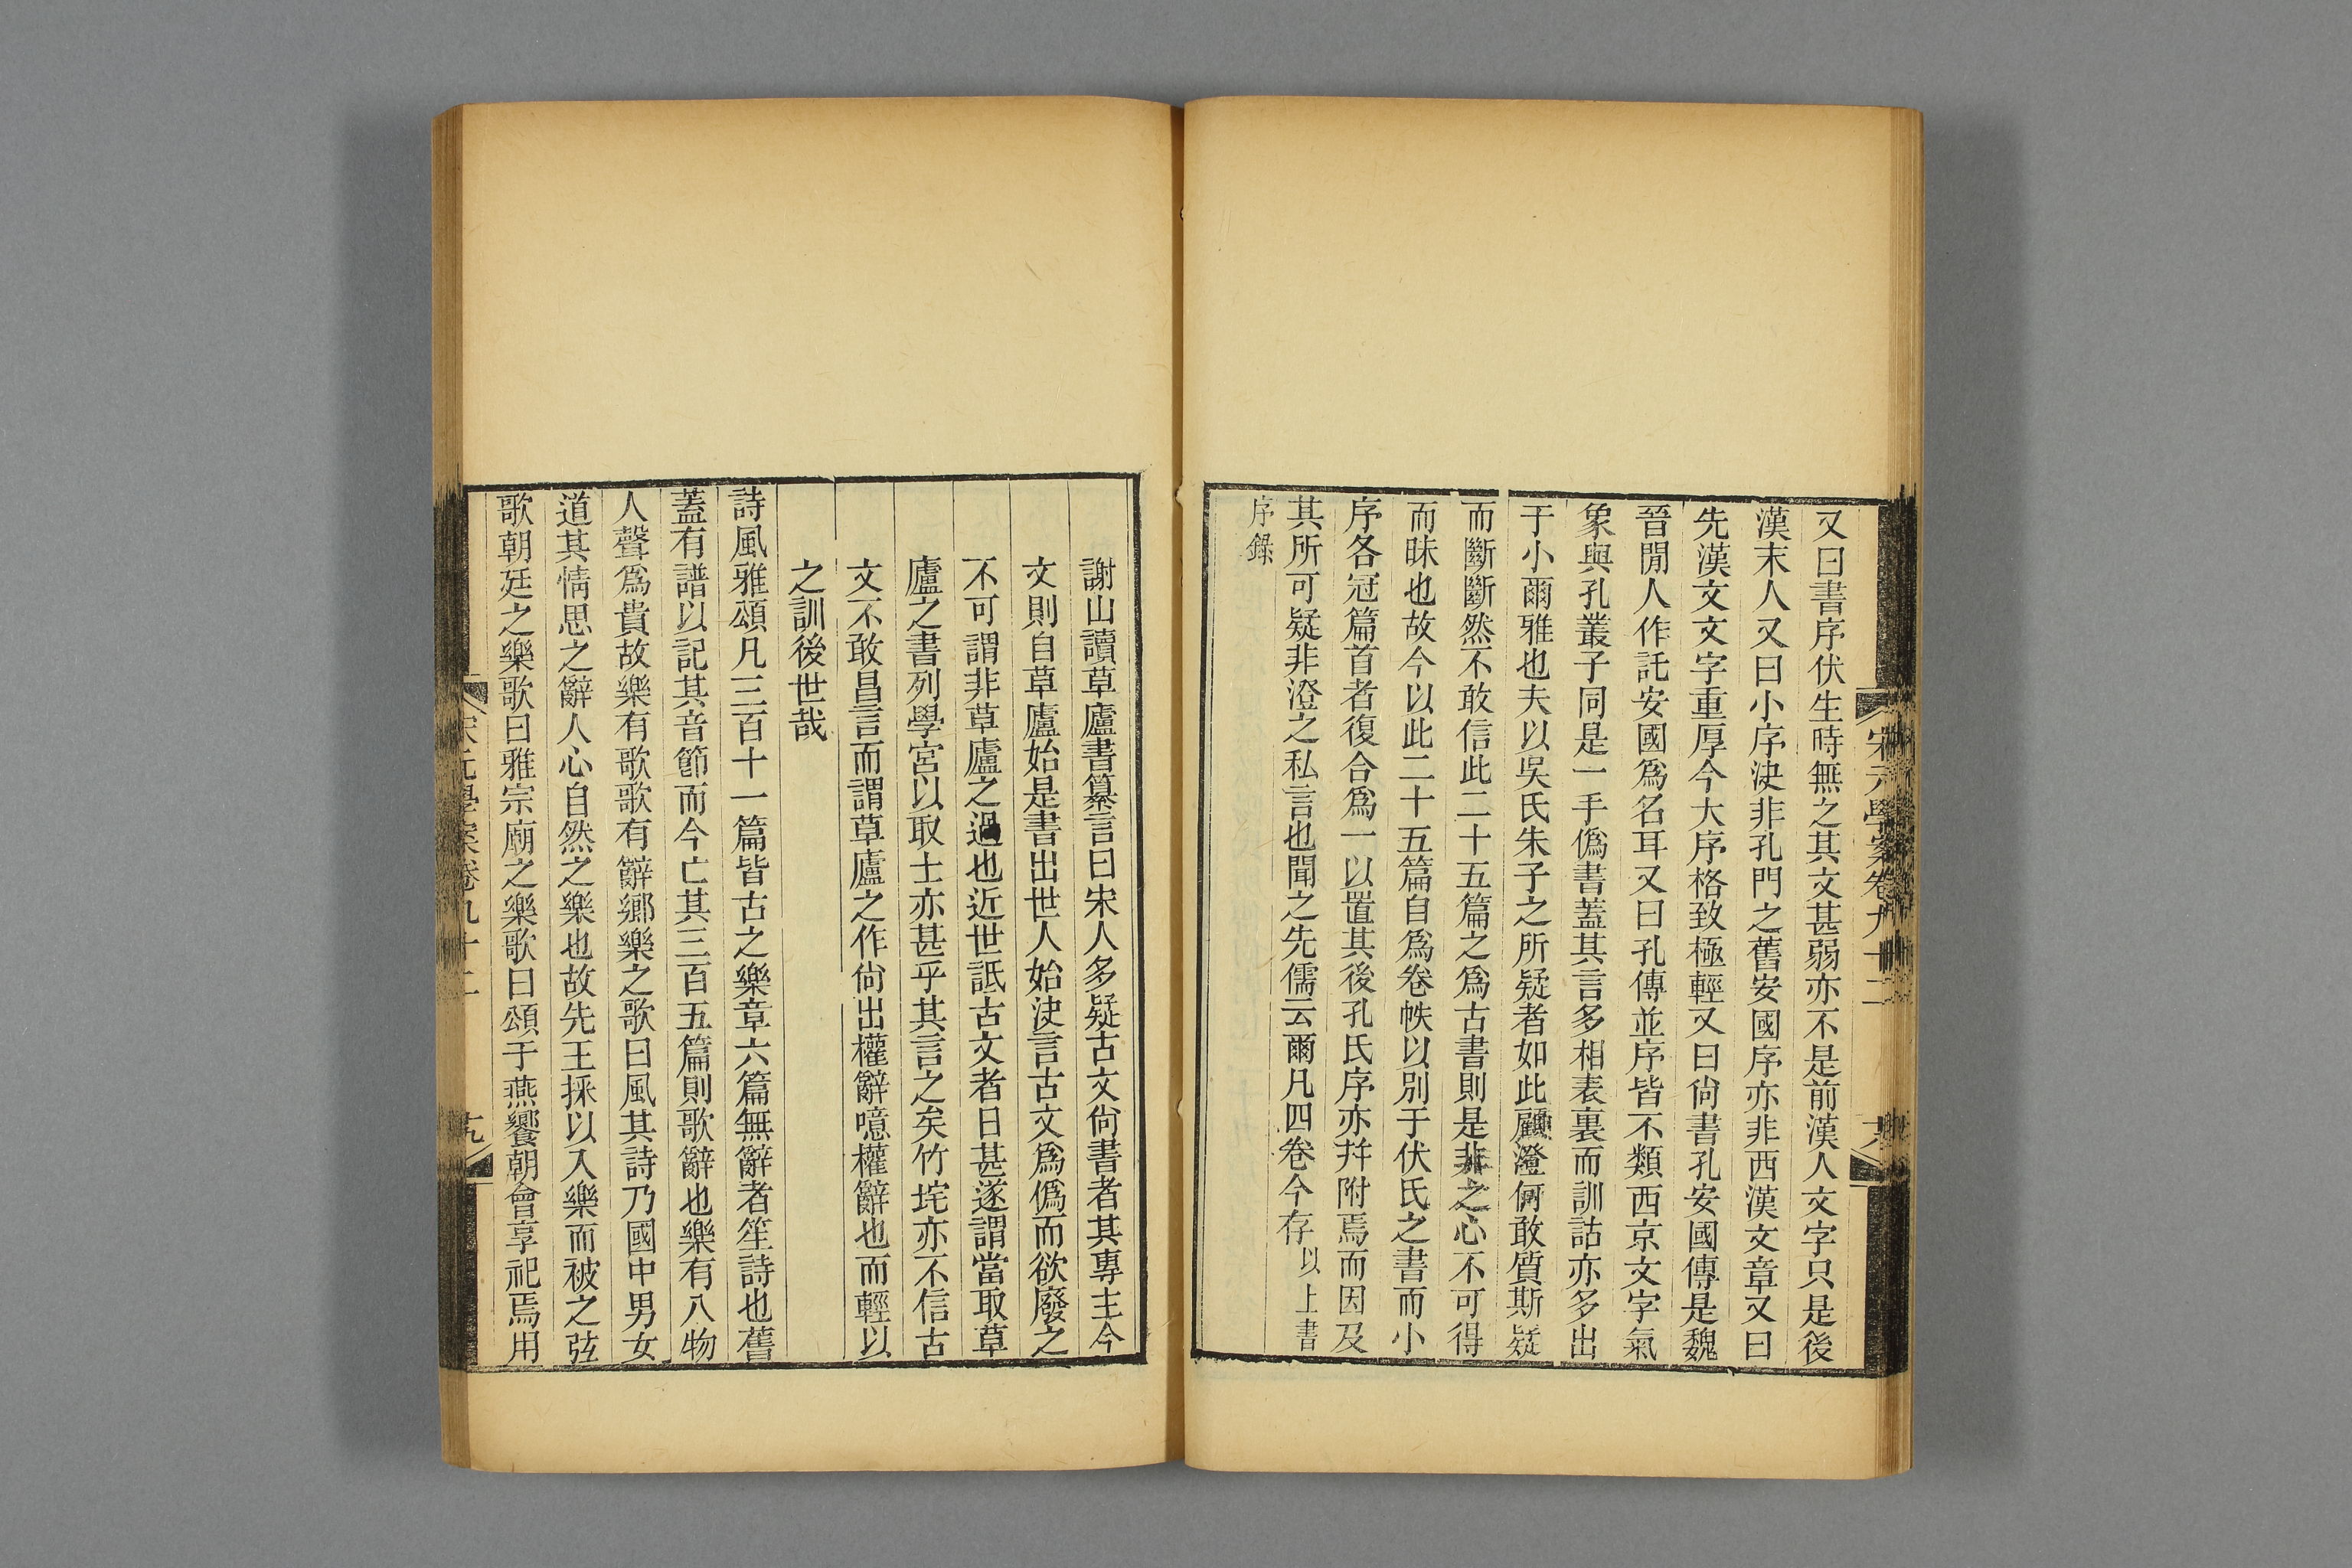 宋元學案卷九十二
又曰書序伏生時無之其文甚弱亦不是前漢人文字只是後
漢末人又曰小序決非孔門之舊安國序亦非西漢文章又曰
先漢文文字重厚今大序格致極輕又曰尙書孔安國傳是魏
晉閒人作託安國爲名耳又曰孔傳並序皆不類西京文字氣
象與孔叢子同是一手僞書蓋其言多相表裏而訓詁亦多出
于小爾雅也夫以吳氏朱子之所疑者如此顧澄何敢質斯疑
而斷斷然不敢信此二十五篇之爲古書則是非之心不可得
而昧也故今以此二十五篇自爲卷帙以別于伏氏之書而小
序各冠篇首者復合爲一以置其後孔氏序亦幷附焉而因及
其所可疑非澄之私言也聞之先儒云爾凡四卷今存以上書
序錄
謝山讀草廬書纂言曰宋人多疑古文尙書者其專主今
文則自草廬始是書出世人始決言古文爲僞而欲廢之
不可謂非草廬之過也近世詆古文者日甚遂謂當取草
廬之書列學宮以取士亦甚乎其言之矣竹垞亦不信古
文不敢昌言而謂草廬之作尙出權辭噫權辭也而輕以
之訓後世哉
詩風雅頌凡三百十一篇皆古之樂章六篇無辭者笙詩也舊
蓋有譜以記其音節而今亡其三百五篇則歌辭也樂有八物
人聲爲貴故樂有歌歌有辭鄉樂之歌曰風其詩乃國中男女
道其情思之辭人心自然之樂也故先王採以入樂而被之弦
歌朝廷之樂歌曰雅宗廟之樂歌曰頌于燕饗朝會享祀焉用
宋元學案卷九十二
十九